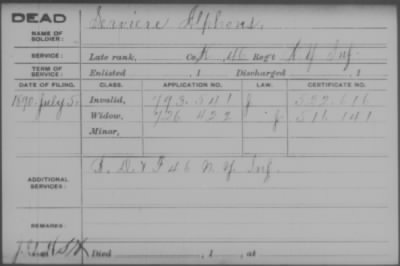 DEAD
NAME OF SOLDIER: Serviere Alphons.
SERVICE: Late rank, Co. K, 46 Reg't N Y Inf.
TERM OF SERVICE: Enlisted , 1 Discharged , 1
DATE OF FILING. CLASS. APPLICATION NO. LAW. CERTIFICATE NO.
1890 July 5. Invalid, 793.541 J 552.616
Widow, 776.422 J 511.141
Minor,
ADDITIONAL SERVICES: F. D & F 46 N. Y Inf.
REMARKS:
Died , 1 , at